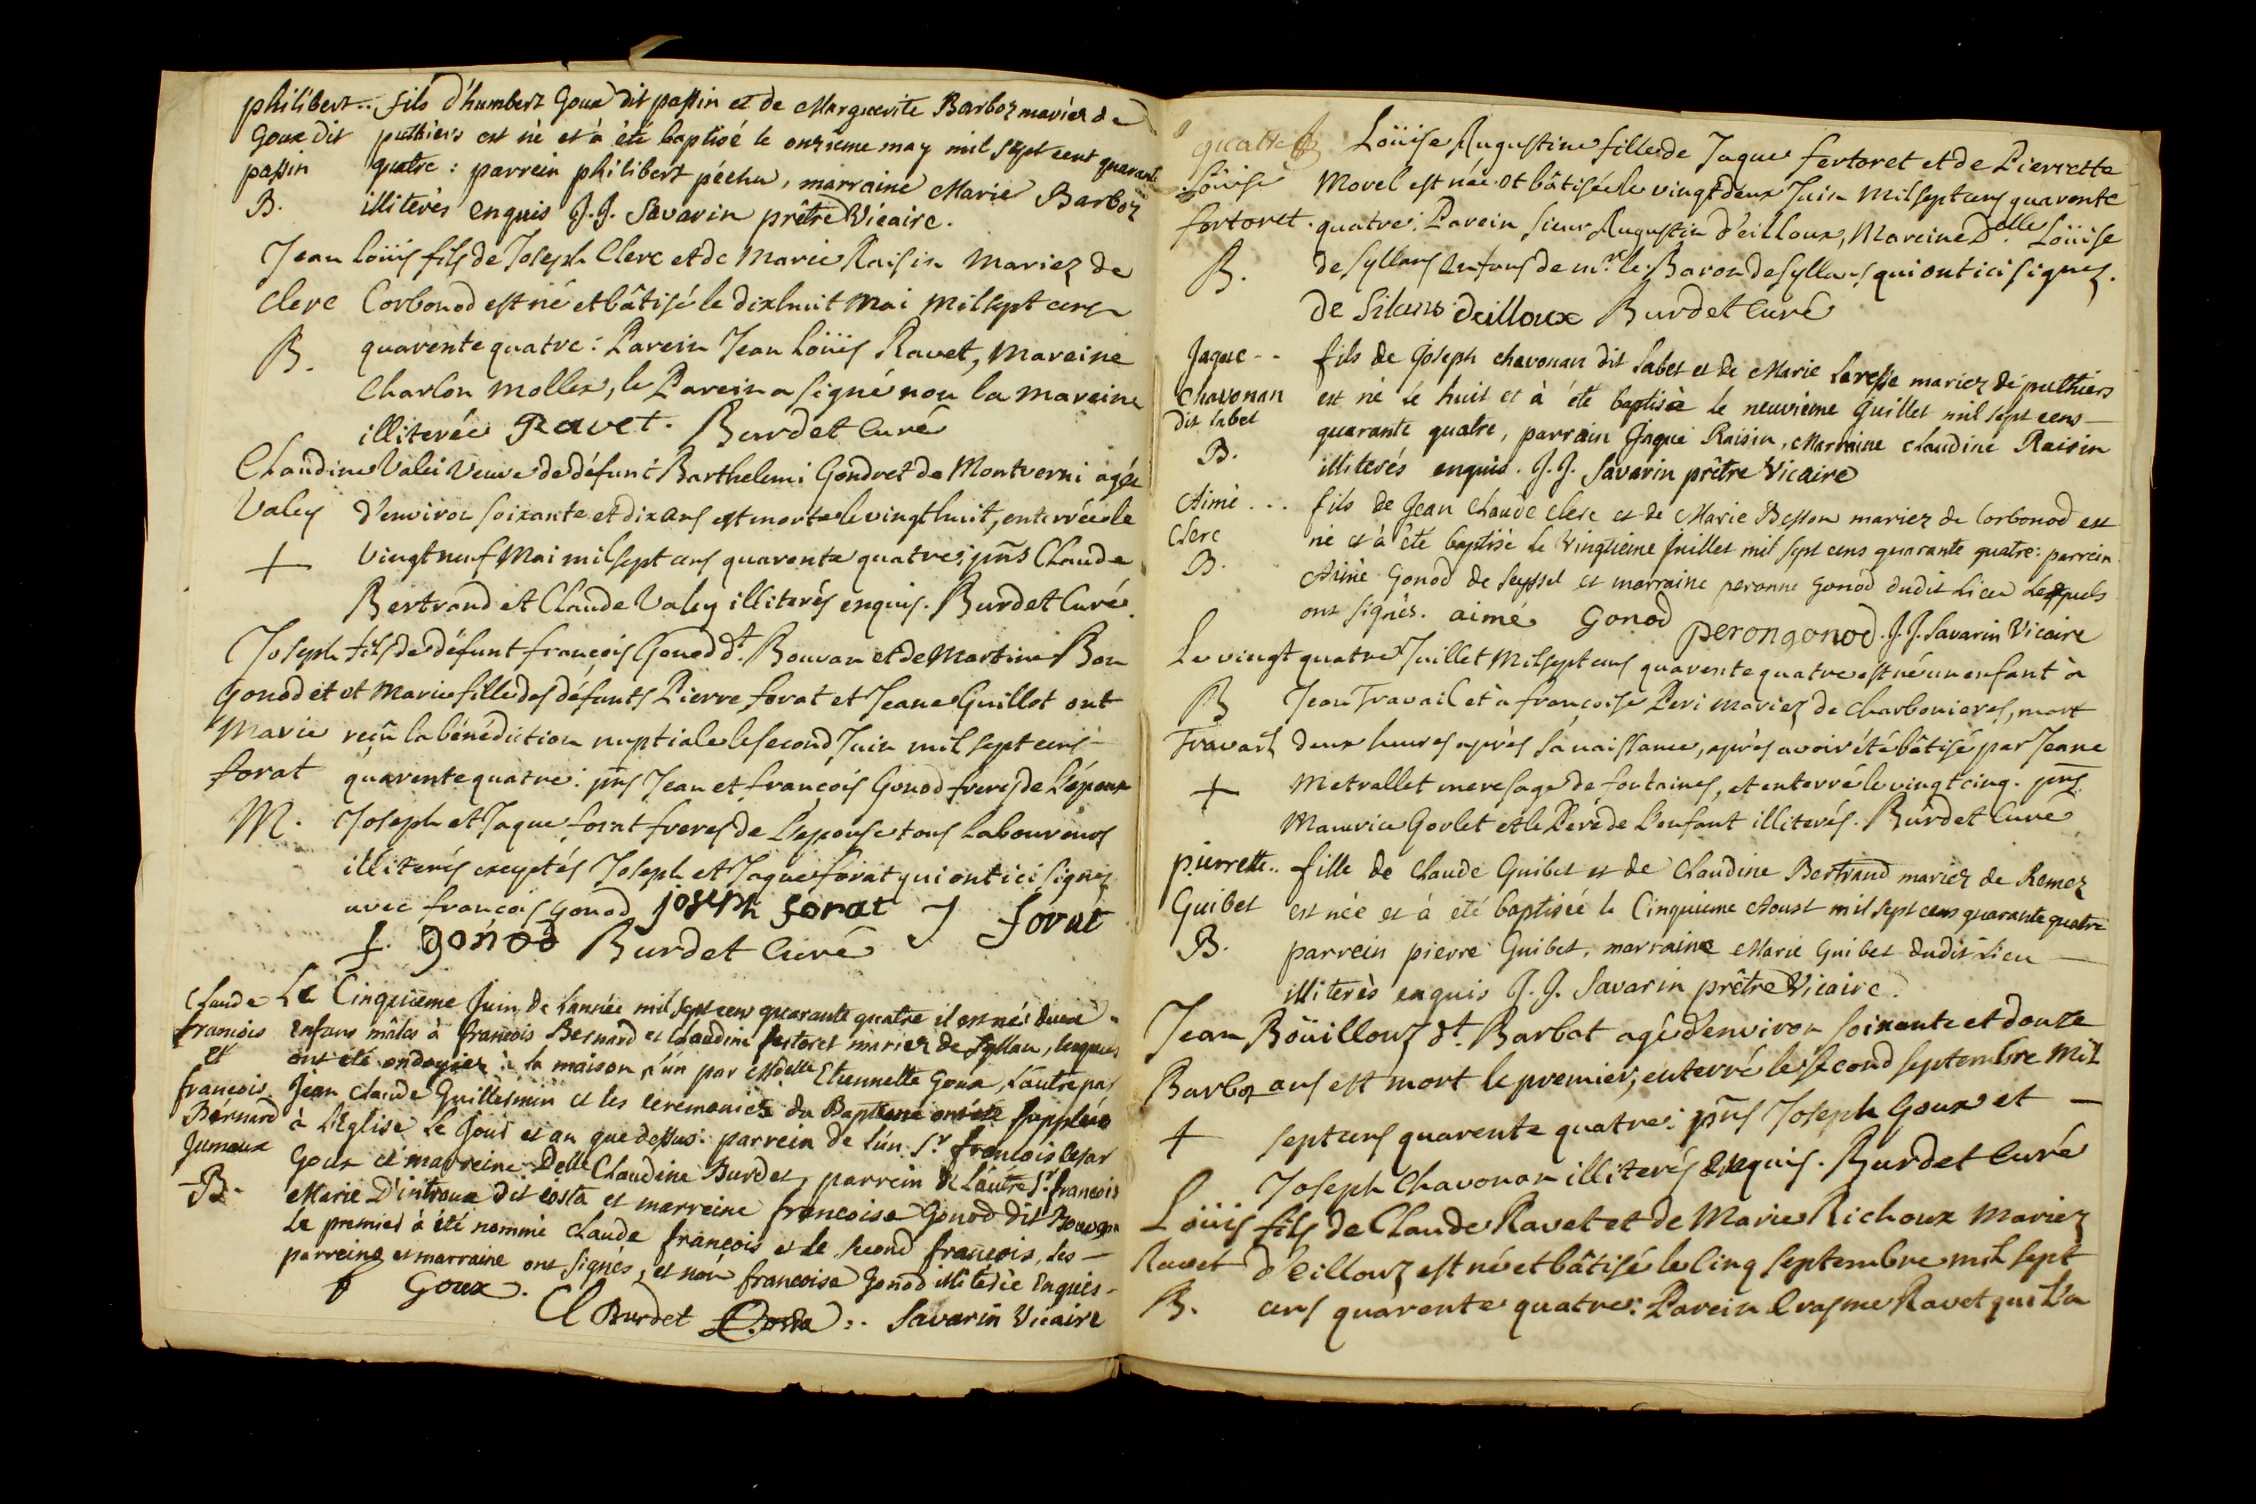 philibert.. fils d'humbert Goux dit passin et de Marguerite Barboz mariéz de
Goux dit puthiers est nè et à été baptisé le onzieme may mil sept cent quarante
passin quatre : parrein philibert péchu, marraine Marie Barboz
B. illiterés enquis J.J. Savarin prêtre Vicaire.
Jean Loüis fils de Joseph Clerc et de Marie Raisin mariez de
Clerc Corbonod est né et bâtisé le dixhuit Mai Mil sept cens
B. quarente quatre : Parein Jean Loüis Ravet, Mareine
Charlon Mollex, le Parein a signé non la mareine
illiterée Ravet. Burdet Curé
Claudine Valei Veuve de défunt Barthelemi Gondret de Montverni agée
Valey d'environ soixante et dix ans est morte le vingt huit, enterrée le
+ vingt neuf Mai mil sept cens quarente quatre ; pñs Claude
Bertrand et Claude Valey illiterés enquis. Burdet Curé
Joseph fils de défunt françois Gonod dt. Bouvan et de Martine Bon
Gonod et et Marie fille des défunts Pierre forat et Jeane Guillot ont
Marie reçu la bénédiction nuptiale le second Juin mil sept cens
forat quarente quatre : pñs Jean et françois Gonod freres de L'époux
M. Joseph et Jaque forat freres de L'epouse tous Laboureurs
illiterés exeptés Joseph et Jaque forat qui ont ici signez
avec françois Gonod joseph forat J forat
f. gonod Burdet Curé
Claude Le Cinquieme Juin de L'année mil sept cens quarante quatre il est nés deux
françois enfans mâles à françois Bernard et Claudine fertoret mariez de Syllan, lesquels
et ont été ondoyiez à la maison l'un par Mdelle Etiennette Goux, L'autre par
françois Jean Claude Guillermin et les ceremonies du Baptême ont été supplées
Bernard à L'Eglise le Jour et an que dessus : parrein de L'un Sr. françois Cesar
Jumeaux Goux et marreine Delle Claudine Burdet, parrein de L'autre Sr. françois
B. Marie D'introux dit Costa et marreine francoise Gonod dit Bouvan
Le premier à été nommé claude françois et le second françois, les
parreins et marraine ont signés, et non francoise Gonod illiterée Enquis.
f Goux. Cl Burdet Costa. Savarin Vicaire
quatre Loüise Augustine fille de Jaque fertoret et de Pierrette
Loüise Morel est née et bâtisée le vingt deux Juin Mil sept cens quarente
fortoret. quatre : Parein Sieur Augustin d'eilloux, Mareine Dolle. Loüise
B. de Syllans enfans de mr. le Baron de Syllans qui ont ici signez.
De Silans deilloux Burdet Curé
Jaque -- fils de Joseph chavonan dit Labet et de Marie Laresse mariez de puthiers
Chavonan est né le huit et à été baptisée le neuvieme Juillet mil sept cens
dit Labet quarante quatre, parrain Jaque Raisin, Marraine Claudine Raisin
B. illiterés enquis. J.J. Savarin prêtre Vicaire
Aimé... fils de Jean Claude Clerc et de Marie Besson mariez de Corbonod est
Clerc né et à été baptisé le vingtieme Juillet mil sept cens quarante quatre : parrein
B. Aimé Gonod de Seyssel et marraine peronne Gonod dudit Lieu Lesquels
ont signés. aimé Gonod perongonod. J.J. Savarin Vicaire
Le vingt quatre Juillet Mil sept cens quarente quatre est né un enfant à
B Jean Travail et à françoise Peri mariez de Charbonieres, mort
Travail deux heures après sa naissance, après avoir été bâtisé par Jeane
+ Metrallet mere sage de fontaines, et enterré le vingt cinq. pñs
Maurice Gorlet et le Pére de L'enfant illiterés. Burdet Curé
pierrette.. fille de Claude Guibet et de Claudine Bertrand mariez de Remez
Guibet est née et à été baptisée le Cinquieme Aoust mil sept cens quarante quatre
B. parrein pierre Guibet, marraine Marie Guibet dudit Lieu
illiterés enquis J.J. Savarin prêtre Vicaire.
Jean Boüillouz dt. Barbot agé d'environ soixante et douze
Barbot ans est mort le premier, enterré le second septembre Mil
+ sept cens quarente quatre : pñs Joseph Goux et
Joseph Chavonan illiterés Enquis. Burdet Curé
Loüis fils de Claude Ravet et de Marie Richoux Mariez
Ravet d'eillouz est né et bâtisé le Cinq septembre mil sept
B. cens quarente quatre : Parein Erasme Ravet qui L'a